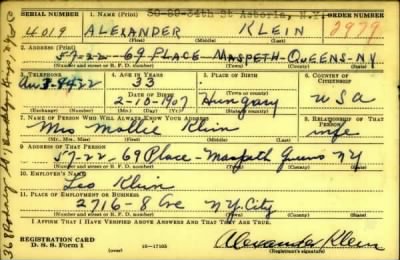 SERIAL NUMBER 1. NAME (Print) ORDER NUMBER
4019 ALEXANDER KLEIN 3979
(First) (Middle) (Last)
2. ADDRESS (Print)
57-22-69 PLACE MASPETH-QUEENS-NY
(Number and street or R. F. D. number) (Town) (County) (State)
3. TELEPHONE 4. AGE IN YEARS 5. PLACE OF BIRTH 6. COUNTRY OF CITIZENSHIP
33
DATE OF BIRTH
2-10-1907 Hungary USA
(Exchange) (Number) (Mo.) (Day) (Yr.) (State or country)
7. NAME OF PERSON WHO WILL ALWAYS KNOW YOUR ADDRESS 8. RELATIONSHIP OF THAT PERSON
Mrs Mollie Klein wife
(Mr., Mrs., Miss) (First) (Middle) (Last)
9. ADDRESS OF THAT PERSON
57-22-69 Place-Maspeth Queens NY
(Number and street or R. F. D. number) (Town) (County) (State)
10. EMPLOYER'S NAME
Leo Klein
11. PLACE OF EMPLOYMENT OR BUSINESS
2716-8 Ave N.Y. City
(Number and street or R. F. D. number) (Town) (County) (State)
I AFFIRM THAT I HAVE VERIFIED ABOVE ANSWERS AND THAT THEY ARE TRUE.
REGISTRATION CARD
D. S. S. Form 1 16-17105 Alexander Klein
(Registrant's signature)